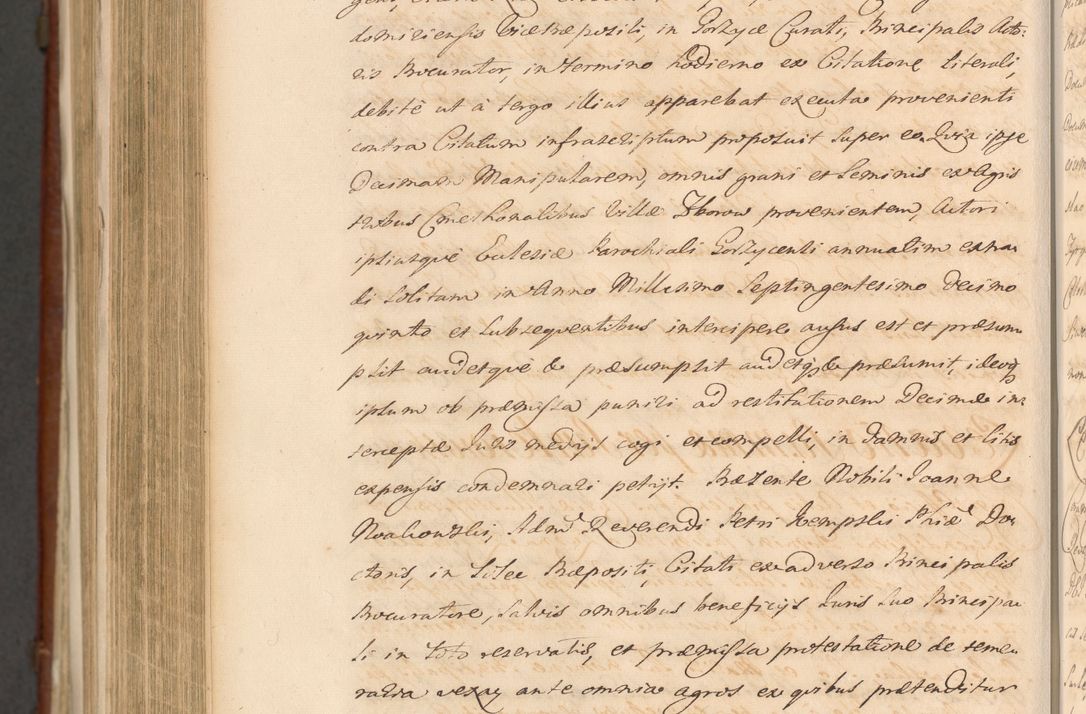 domiriensis Viceprepositi, in Gorzyce Curati, Principalis Acto-
ris Procurator, in termino hodierno ex Citatione literali,
debitè ut à tergo illius apparebat executa provenienti
contra Citatum infrascriptum proposuit super eo, Quia ipse
Decimam Manipularem, omnis grani et seminis ex Agris
tribus Cmethonalibus Villæ Zborow provenientem, Actori
ipsiusque Ecclesiæ Parochiali Gorzycensi annuatim extra-
di solitam in Anno Millesimo Septingentesimo Decimo
quinto et subsequentibus intercipere ausus est et præsum-
psit audetque & præsumpsit audetq3 & præsumit, ideoq3
ipsum ob præmissa puniri ad restitutionem Decimæ in-
terceptæ Juris medijs cogi et compelli, in damnis et litis
expensis condemnari petijt. Præsente Nobili Joanne
Noakowski, Admd Reverendi Petri Kempski Phiæ Do-
ctoris, in Præpositi, Citati ex adverso Principalis
Procuratore, Salvis omnibus beneficijs Juris Suo Principa-
li in toto reservatis, et præmissa protestatione de teme-
raria vexa, ante omnia agros ex quibus prætenditur